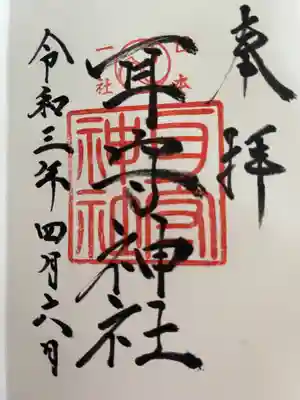 奉拝
日本
一社
耳守神社
耳守
神社
令和三年四月六日